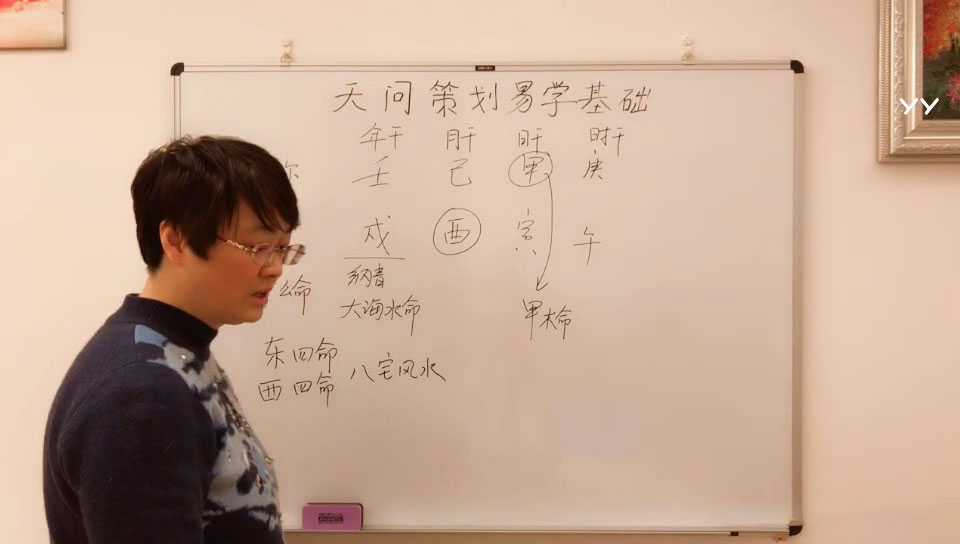 天问策划易学基础
年干 月干 日干 时干
壬 己 甲 庚
戌 酉 寅 午
纳音
大海水命 甲木命
么命
东四命
西四命 八宅风水
YY